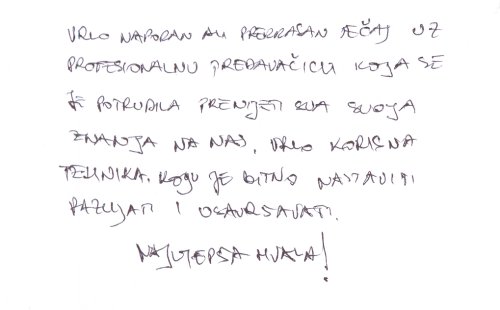 VRLO NAPORAN ALI PREKRASAN TEČAJ UZ
PROFESIONALNU PREDAVAČICU KOJA SE
JE POTRUDILA PRENIJETI SVA SVOJA
ZNANJA NA NAS, VRLO KORISNA
TEHNIKA. KOJU JE BITNO NASTAVITI
RAZVIJATI I USAVRŠAVATI.
NAJLJEPŠA HVALA!